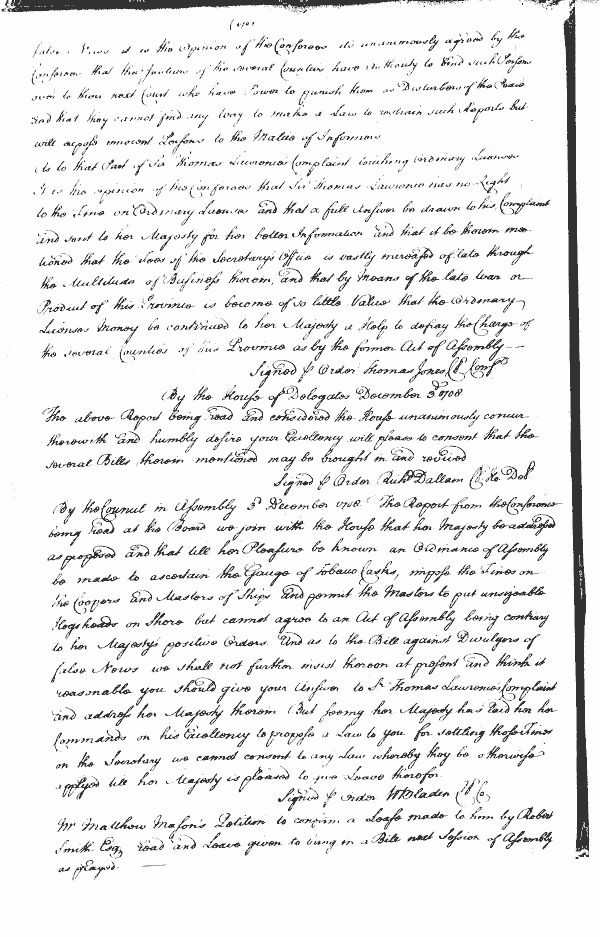 false News it is the Opinion of the Conferees it is unanimously agreed by the
Conferees that the Justices of the several Counties have Authority to bind such Persons
over to their next Court who have Power to punish them as Disturbers of the Peace
and that they cannot find any way to make a Law to restrain such Reports but
will expose innocent Persons to the Malice of Informers
As to that Part of Sir Thomas Lawrence's Complaint touching Ordinary Licenses
It is the opinion of the Conferees that Sir Thomas Lawrence has no Right
to the Fine on Ordinary Licences and that a full Answer be drawn to his Complaint
and sent to her Majesty for her better Information and that it be therein men
tioned that the Fees of the Secretary's Office is vastly increased of late through
the Multitude of Business therein, and that by Means of the late War or
Product of this Province is become of so little Value that the Ordinary
Licenses Money be continued to her Majesty a Help to defray the Charge of
the several Counties of this Province as by the former Act of Assembly
Signed p Order Thomas Jones, Cl Confce
By the House of Delegates December 3d 1708
The above Report being read and considered the House unanimously concur
therewith and humbly desire your Excellency will please to consent that the
several Bills therein mentioned may be brought in and revived
Signed p Order Richd Dallam Cl Ho Del
By the Council in Assembly 3d December 1708 The Report from the Conference
being read at the Board we join with the House that her Majesty be addressed
as proposed and that till her Pleasure be known an Ordinance of Assembly
be made to ascertain the Gauge of Tobacco Casks, impose the Fines on
the Coopers and Masters of Ships and permit the Masters to put unsizeable
Hogsheads on Shore but cannot agree to an Act of Assembly being contrary
to her Majesty's positive Orders. And as to the Bill against Divulgers of
false News we shall not further insist thereon at present and think it
reasonable you should give your Answer to Sr Thomas Lawrence's Complaint
and address her Majesty therein But seeing her Majesty has laid her
Commands on his Excellency to propose a Law to you for settling those Fines
on the Secretary we cannot consent to any Law whereby they be otherwise
applyed till her Majesty is pleased to give Leave therefor.
Signed p Order W Bladen Cl Co
Mr Matthew Mason's Petition to confirm a Lease made to him by Robert
Smith Esq read and Leave given to bring in a Bill next Session of Assembly
as prayed.